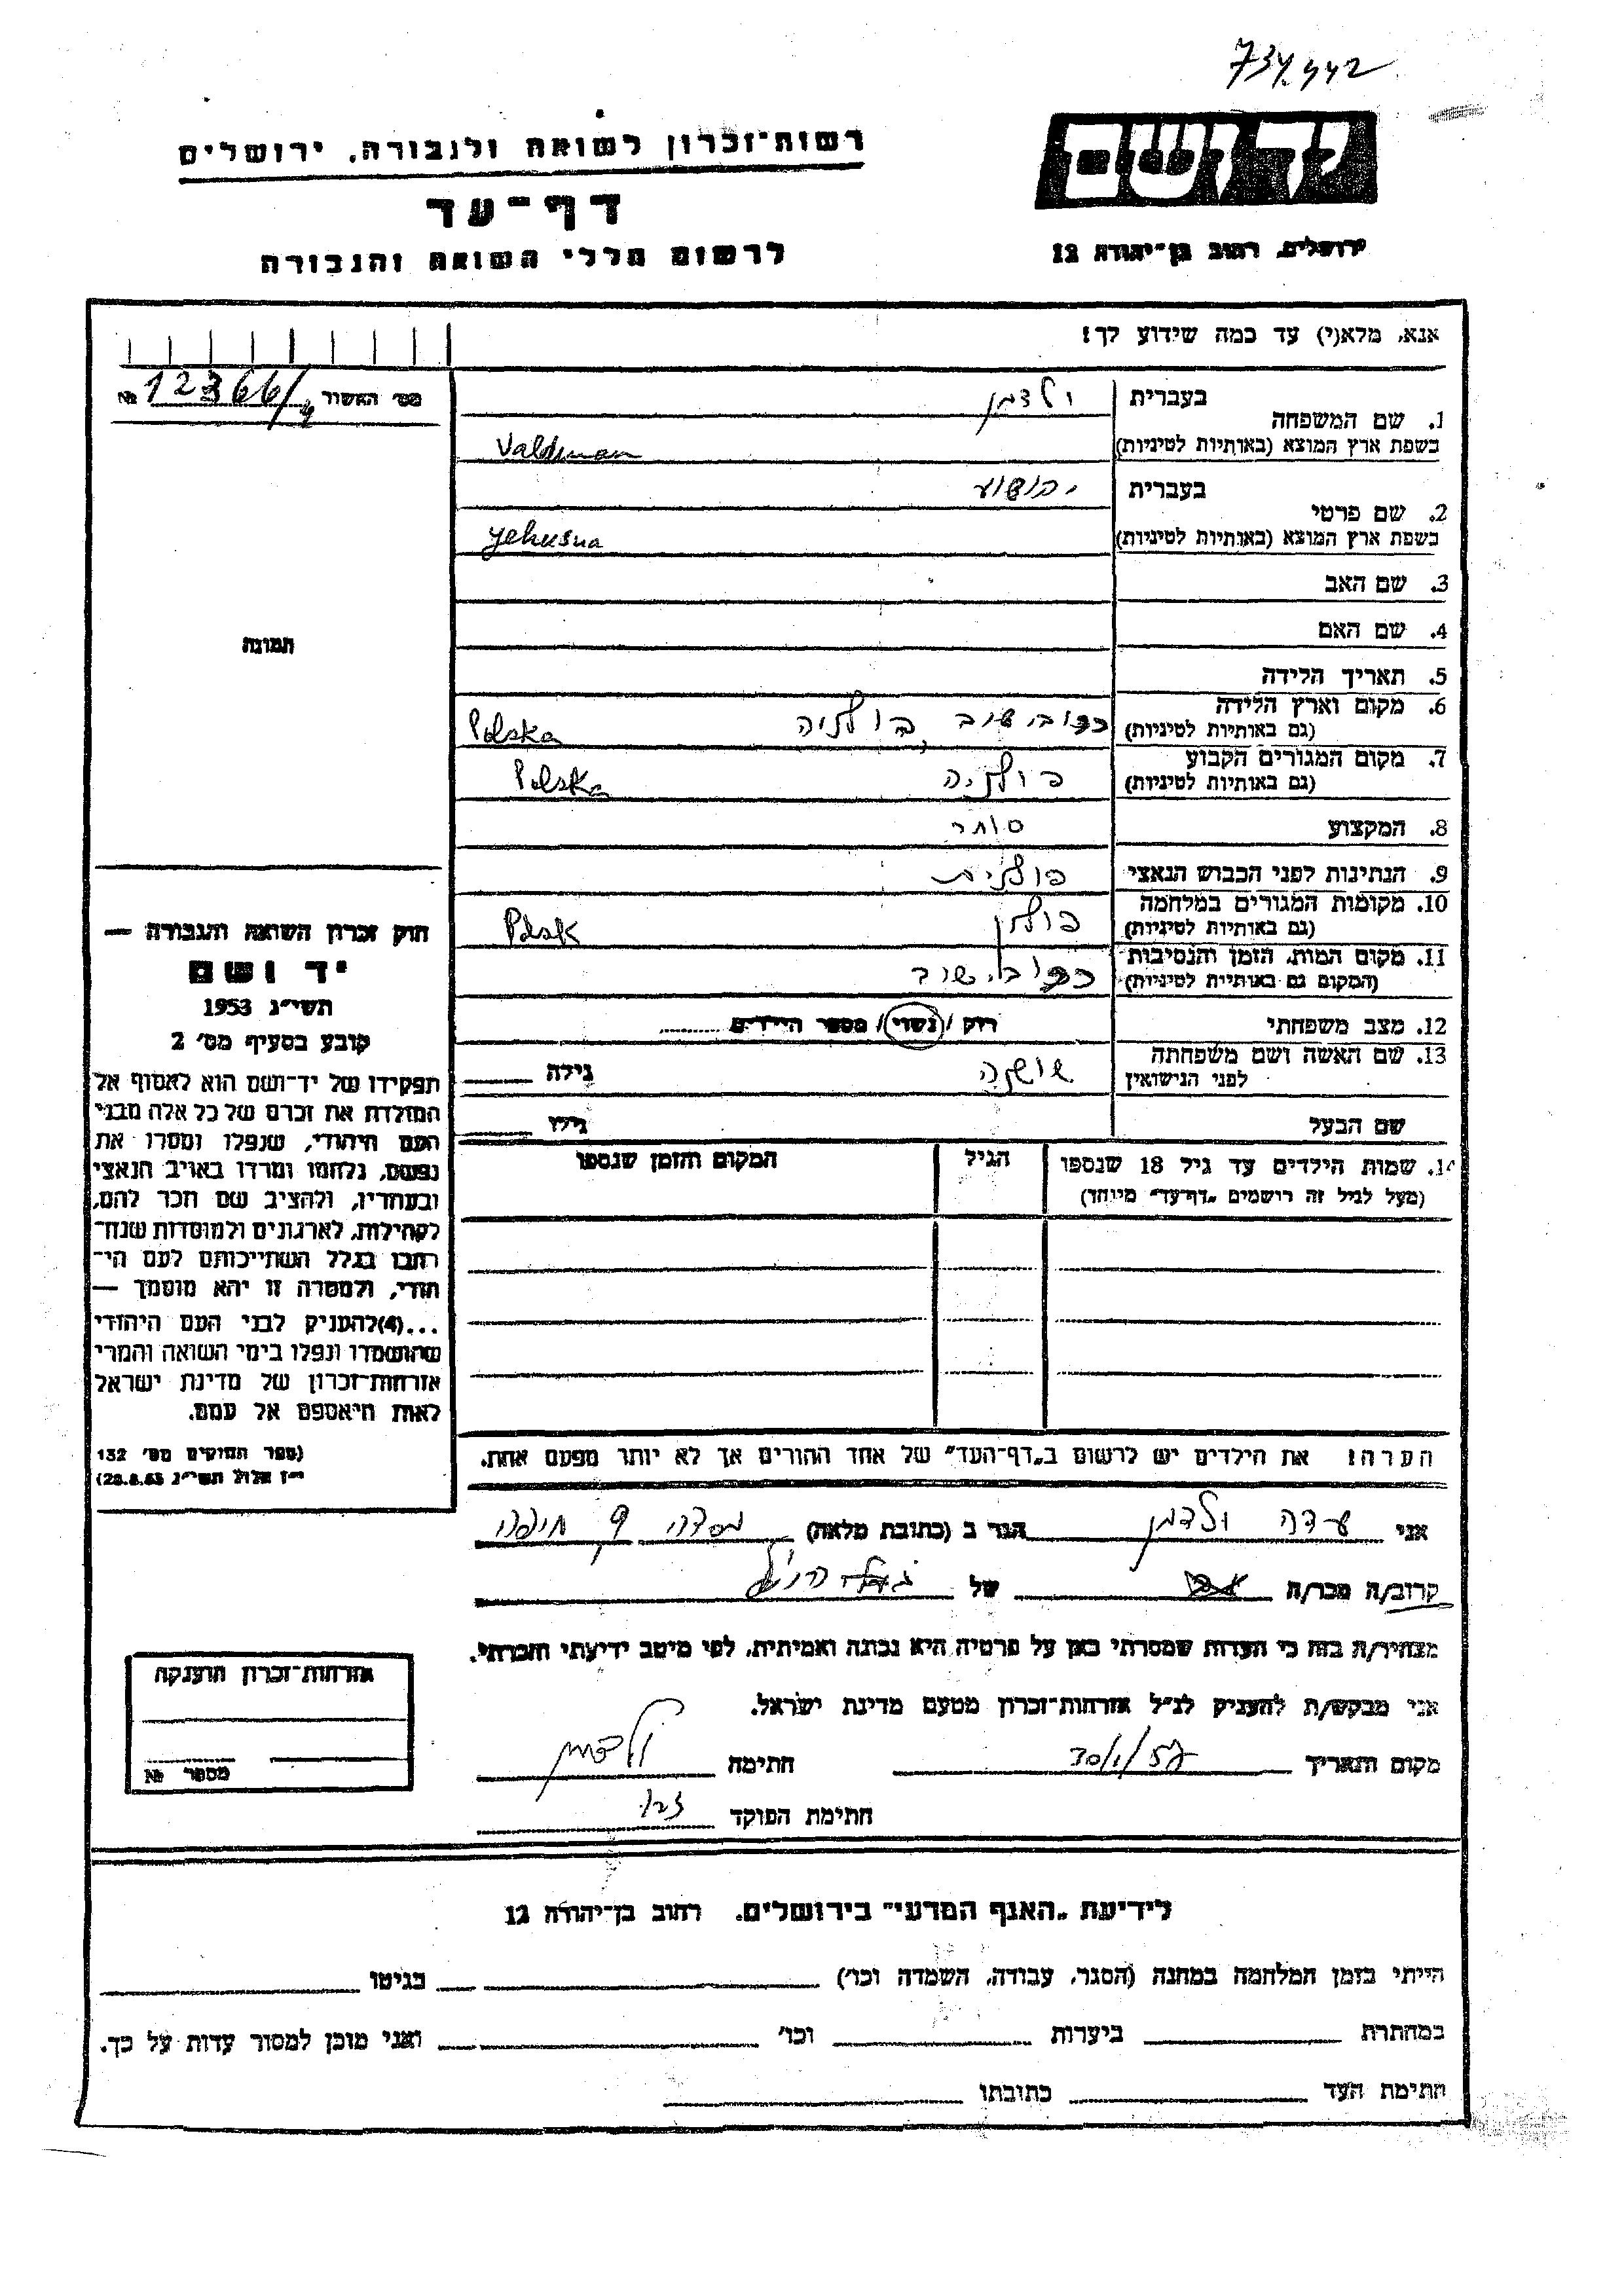 734,442
יד ושם
רשות־זכרון לשואה ולגבורה, ירושלים
דף־עד
ירושלים, רחוב בן־יהודה 12
לרשום חללי השואה והגבורה
אנא, מלא(י) עד כמה שידוע לך!
מס׳ האשור 12366/4 №
בעברית ולדמן
1. שם המשפחה
בשפת ארץ המוצא (באותיות לטיניות) Valdman
בעברית יהושוע
2. שם פרטי
בשפת ארץ המוצא (באותיות לטיניות) Yehusua
3. שם האב
4. שם האם
תמונה
5. תאריך הלידה
6. מקום וארץ הלידה
(גם באותיות לטיניות) פולניה Polska
7. מקום המגורים הקבוע
(גם באותיות לטיניות) פולניה Polska
8. המקצוע סוחר
9. הנתינות לפני הכבוש הנאצי פולנית
10. מקומות המגורים במלחמה
(גם באותיות לטיניות) פולין Polsk
11. מקום המות, הזמן והנסיבות
(המקום גם באותיות לטיניות)
12. מצב משפחתי רוק / נשוי / מספר הילדים
13. שם האשה ושם משפחתה
לפני הנישואין שושנה גילה
שם הבעל גילו
14. שמות הילדים עד גיל 18 שנספו הגיל המקום והזמן שנספו
(מעל לגיל זה רושמים „דף־עד״ מיוחד)
חוק זכרון השואה והגבורה —
יד ושם
תשי״ג 1953
קובע בסעיף מס׳ 2
תפקידו של יד־ושם הוא לאסוף אל
המולדת את זכרם של כל אלה מבני
העם היהודי, שנפלו ומסרו את
נפשם, נלחמו ומרדו באויב הנאצי
ובעוזריו, ולהציב שם וזכר להם,
לקהילות, לארגונים ולמוסדות שנח־
רבו בגלל השתייכותם לעם הי־
הודי, ולמטרה זו יהא מוסמך —
...(4)להעניק לבני העם היהודי
שהושמדו ונפלו בימי השואה והמרי
אזרחות־זכרון של מדינת ישראל
לאות היאספם אל עמם.
(ספר החוקים מס׳ 132
י״ז אלול תשי״ג 28.8.53)
הערה! את הילדים יש לרשום ב„דף־העד״ של אחד ההורים אך לא יותר מפעם אחת.
אני עדה ולדמן הגר ב (כתובת מלאה) מסדה 9 חיפה
קרוב/ה מכר/ה של
מצהיר/ה בזה כי העדות שמסרתי כאן על פרטיה היא נכונה ואמיתית, לפי מיטב ידיעתי והכרתי.
אני מבקש/ת להעניק לנ״ל אזרחות־זכרון מטעם מדינת ישראל.
מקום ותאריך 30/1/57 חתימה ולדמן
חתימת הפוקד
אזרחות־זכרון הוענקה
מספר №
לידיעת „האגף המדעי״ בירושלים. רחוב בן־יהודה 12
הייתי בזמן המלחמה במחנה (הסגר, עבודה, השמדה וכו׳) בגיטו
במחתרת ביערות וכו׳ ואני מוכן למסור עדות על כך.
חתימת העד כתובתו